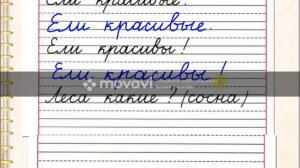 Ели красивые.
Ели красивые.
Ели красивы!
Ели красивы!
movavi
Леса какие? (сосна)